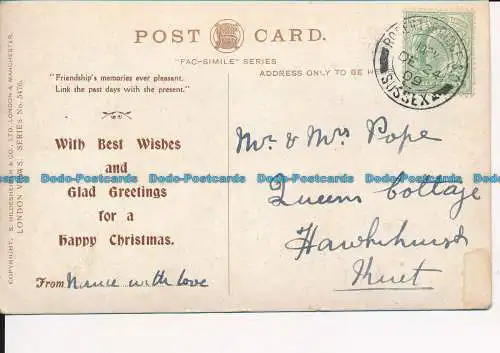 POST CARD.
"FAC-SIMILE" SERIES
ADDRESS ONLY TO BE
"Friendship's memories ever pleasant.
Link the past days with the present."
With Best Wishes
and
Glad Greetings
for a
Happy Christmas.
From Nance with love
Mr & Mrs Pope
Queens Cottage
Hawkhurst
Kent
ROBERTSBRIDGE
DE 24
09
SUSSEX
COPYRIGHT, S. HILDESHEIMER & CO., LTD. LONDON & MANCHESTER.
LONDON VIEWS. SERIES No. 5476.
Dodo-Postcards Dodo-Postcards Dodo-Postcards Dodo-Postcards Dodo-Postcards